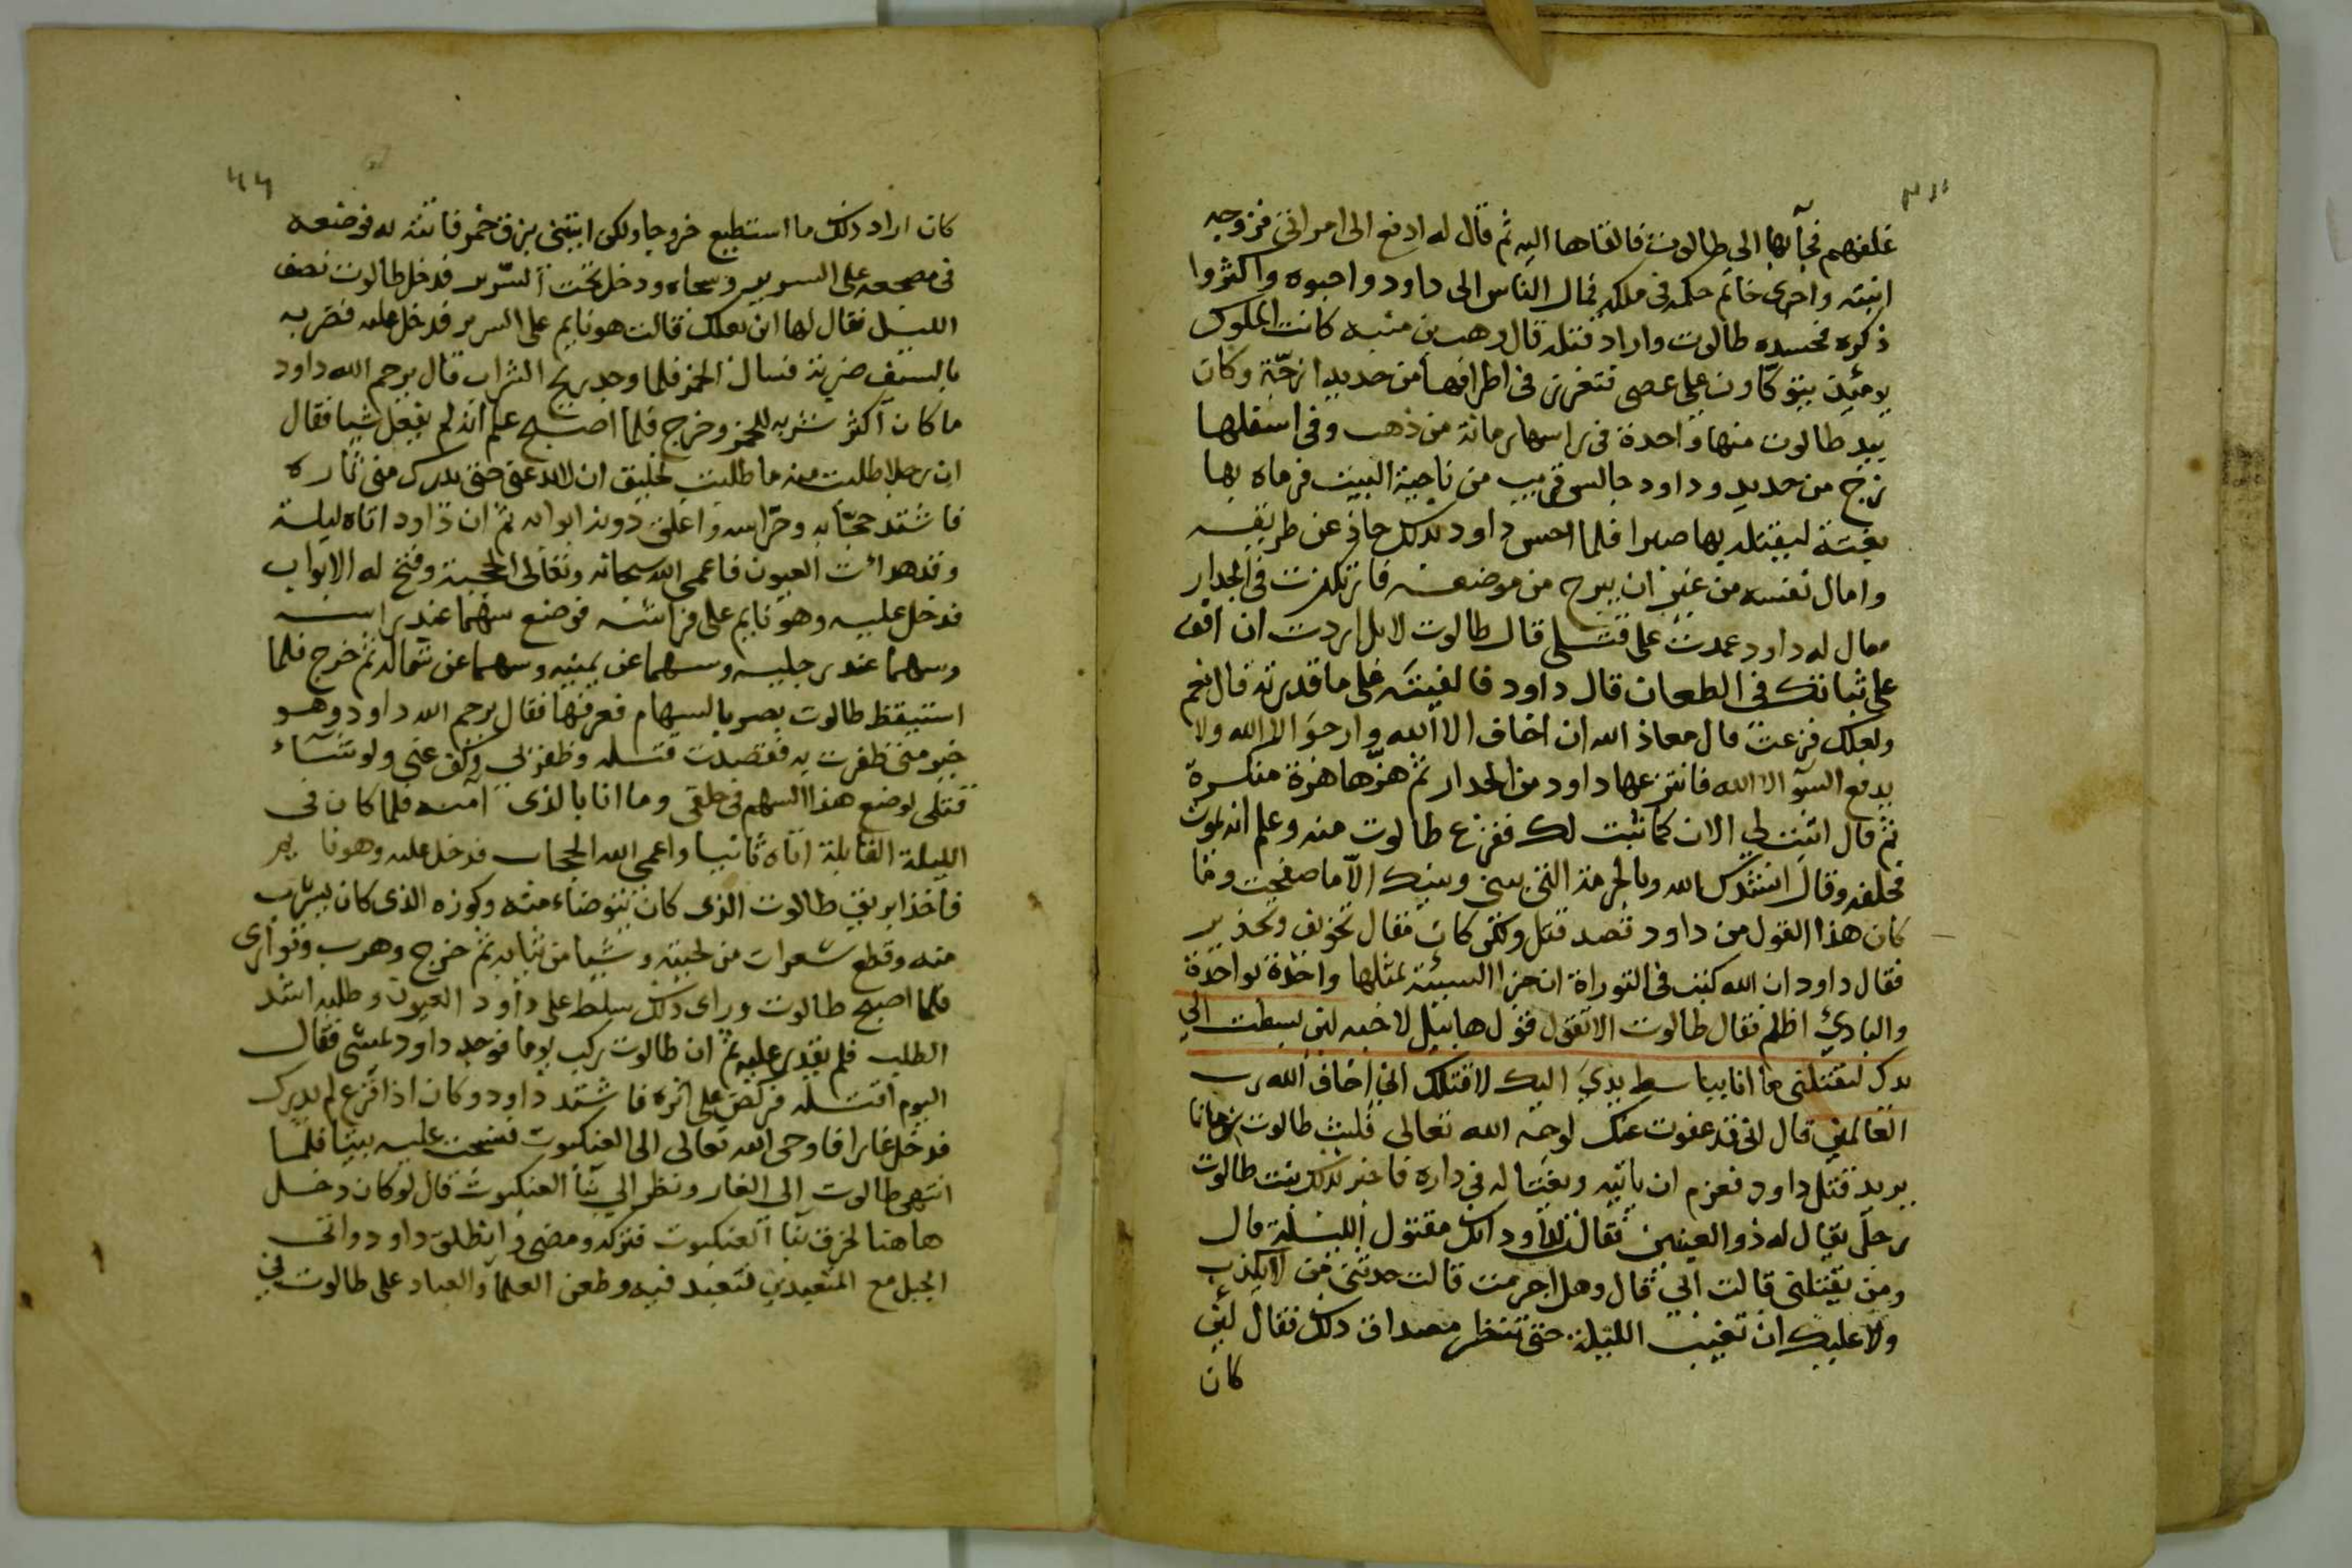 غلفهم فجآ بها الى طالوت فالقاها اليه ثم قال له ادفع الى امراتى فزوجه
ابنته واجرى خاتم حكمه فى ملكه فمال الناس الى داود واحبوه واكثروا
ذكره فحسده طالوت واراد قتله قال وهب بن منبه كانت الملوك
يومئذ يتوكاون على عصى فى اطرافها من حديد ازجة وكان
بيد طالوت منها واحدة فى راسها رمانة من ذهب وفى اسفلها
زج من حديد وداود جالس قريب من ناحية البيت فرماه بها
بغتة ليقتله بها صبرا فلما احس داود بذلك حاذ عن طريقه
وامال نفسه من غير ان يبرح من موضعه فارتكزت فى الجدار
فقال له داود عمدت على قتلى قال طالوت لا بل اردت ان اقف
على ثباتك فى الطعان قال داود فالفيته على ما قدرته قال نعم
ولعلك فزعت قال معاذ الله ان اخاف الا الله وارجو الا الله ولا
يدفع السوآ الا الله فانتزعها داود من الجدار ثم هزها هزة منكرة
ثم قال اثبت لى الان كما ثبت لك ففزع طالوت منه وعلم انه يموت
فحلفه وقال انشدك الله وبالحرمة التى بينى وبينك الا ما صفحت وما
كان هذا القول من داود قصد قتل ولكن كان مقال تخويف وتحذير
فقال داود ان الله كتب فى التوراة ان جزا السيئة بمثلها واحدة بواحدة
والبادئ اظلم فقال طالوت الا تقول قول هابيل لاخيه لئن بسطت الي
يدك لتقتلنى ما انا بباسط يدي اليك لاقتلك انى اخاف الله رب
العالمين قال انى قد عفوت عنك لوجه الله تعالى فلبث طالوت زمانا
يريد قتل داود فعزم ان ياتيه ويغتاله فى داره فاخبر بذلك بنت طالوت
رجل يقال له ذو العينين فقالت لداود انك مقتول الليلة قال
ومن يقتلنى قالت ابي قال وهل اجرمت قالت حدثنى من لا يكذب
ولا عليك ان تغيب الليلة حتى تنظر مصداق ذلك فقال لئن
كان
كان اراد ذلك ما استطيع خروجا ولكن ايتينى بزق خمر فاتته له فوضعه
فى مضجعه على السرير وسجاه ودخل تحت السرير فدخل طالوت نصف
الليل فقال لها اين بعلك قالت هو نايم على السرير فدخل عليه فضربه
بالسيف ضربة فسال الخمر فلما وجد ريح الشراب قال يرحم الله داود
ما كان اكثر شربه للخمر وخرج فلما اصبح علم انه لم يفعل شيا فقال
ان رجلا طلبت منه ما طلبت لخليق ان لا يدعنى حتى يدرك منى ثاره
فاشتد حجابه وحراسه واغلق دونه ابوابه ثم ان داود اتاه ليلة
وقد هدات العيون فاعمى الله سبحانه وتعالى الحجبة وفتح له الابواب
فدخل عليه وهو نايم على فراشه فوضع سهما عند راسه
وسهما عند رجليه وسهما عن يمينه وسهما عن شماله ثم خرج فلما
استيقظ طالوت بصر بالسهام فعرفها فقال يرحم الله داود وهو
خير منى ظفرت به فقصدت قتله وظفر بى وكف عنى ولو شاء
قتلى لوضع هذا السهم فى حلقى وما انا بالذى آمنه فلما كان فى
الليلة القابلة اتاه ثانيا واعمى الله الحجاب فدخل عليه وهو نايم
فاخذ ابريق طالوت الذى كان يتوضاء منه وكوزه الذى كان يشرب
منه وقطع شعرات من لحيته وشيا من ثيابه ثم خرج وهرب وتوارى
فلما اصبح طالوت وراى ذلك سلط على داود العيون وطلبه اشد
الطلب فلم يقدر عليه ثم ان طالوت ركب يوما فوجد داود يمشى فقال
اليوم اقتله فركض على اثره فاشتد داود وكان اذا افزع لم يدرك
فدخل غارا فاوحى الله تعالى الى العنكبوت فنسجت عليه بيتا فلما
انتهى طالوت الى الغار ونظر الى بنآ العنكبوت قال لو كان دخل
هاهنا لخرق بنآ العنكبوت فتركه ومضى وانطلق داود واتى
الجبل مع المتعبدين فتعبد فيه وطعن العلمآ والعباد على طالوت في